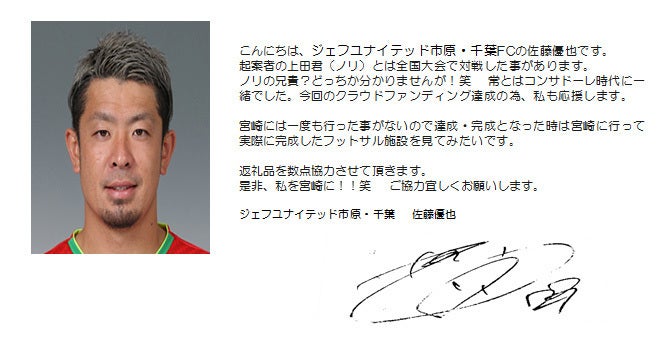 こんにちは、ジェフユナイテッド市原・千葉FCの佐藤優也です。
起案者の上田君（ノリ）とは全国大会で対戦した事があります。
ノリの兄貴？どっちか分かりませんが！笑　常とはコンサドーレ時代に一
緒でした。今回のクラウドファンディング達成の為、私も応援します。
宮崎には一度も行った事がないので達成・完成となった時は宮崎に行って
実際に完成したフットサル施設を見てみたいです。
返礼品を数点協力させて頂きます。
是非、私を宮崎に！！笑　ご協力宜しくお願いします。
ジェフユナイテッド市原・千葉　佐藤優也